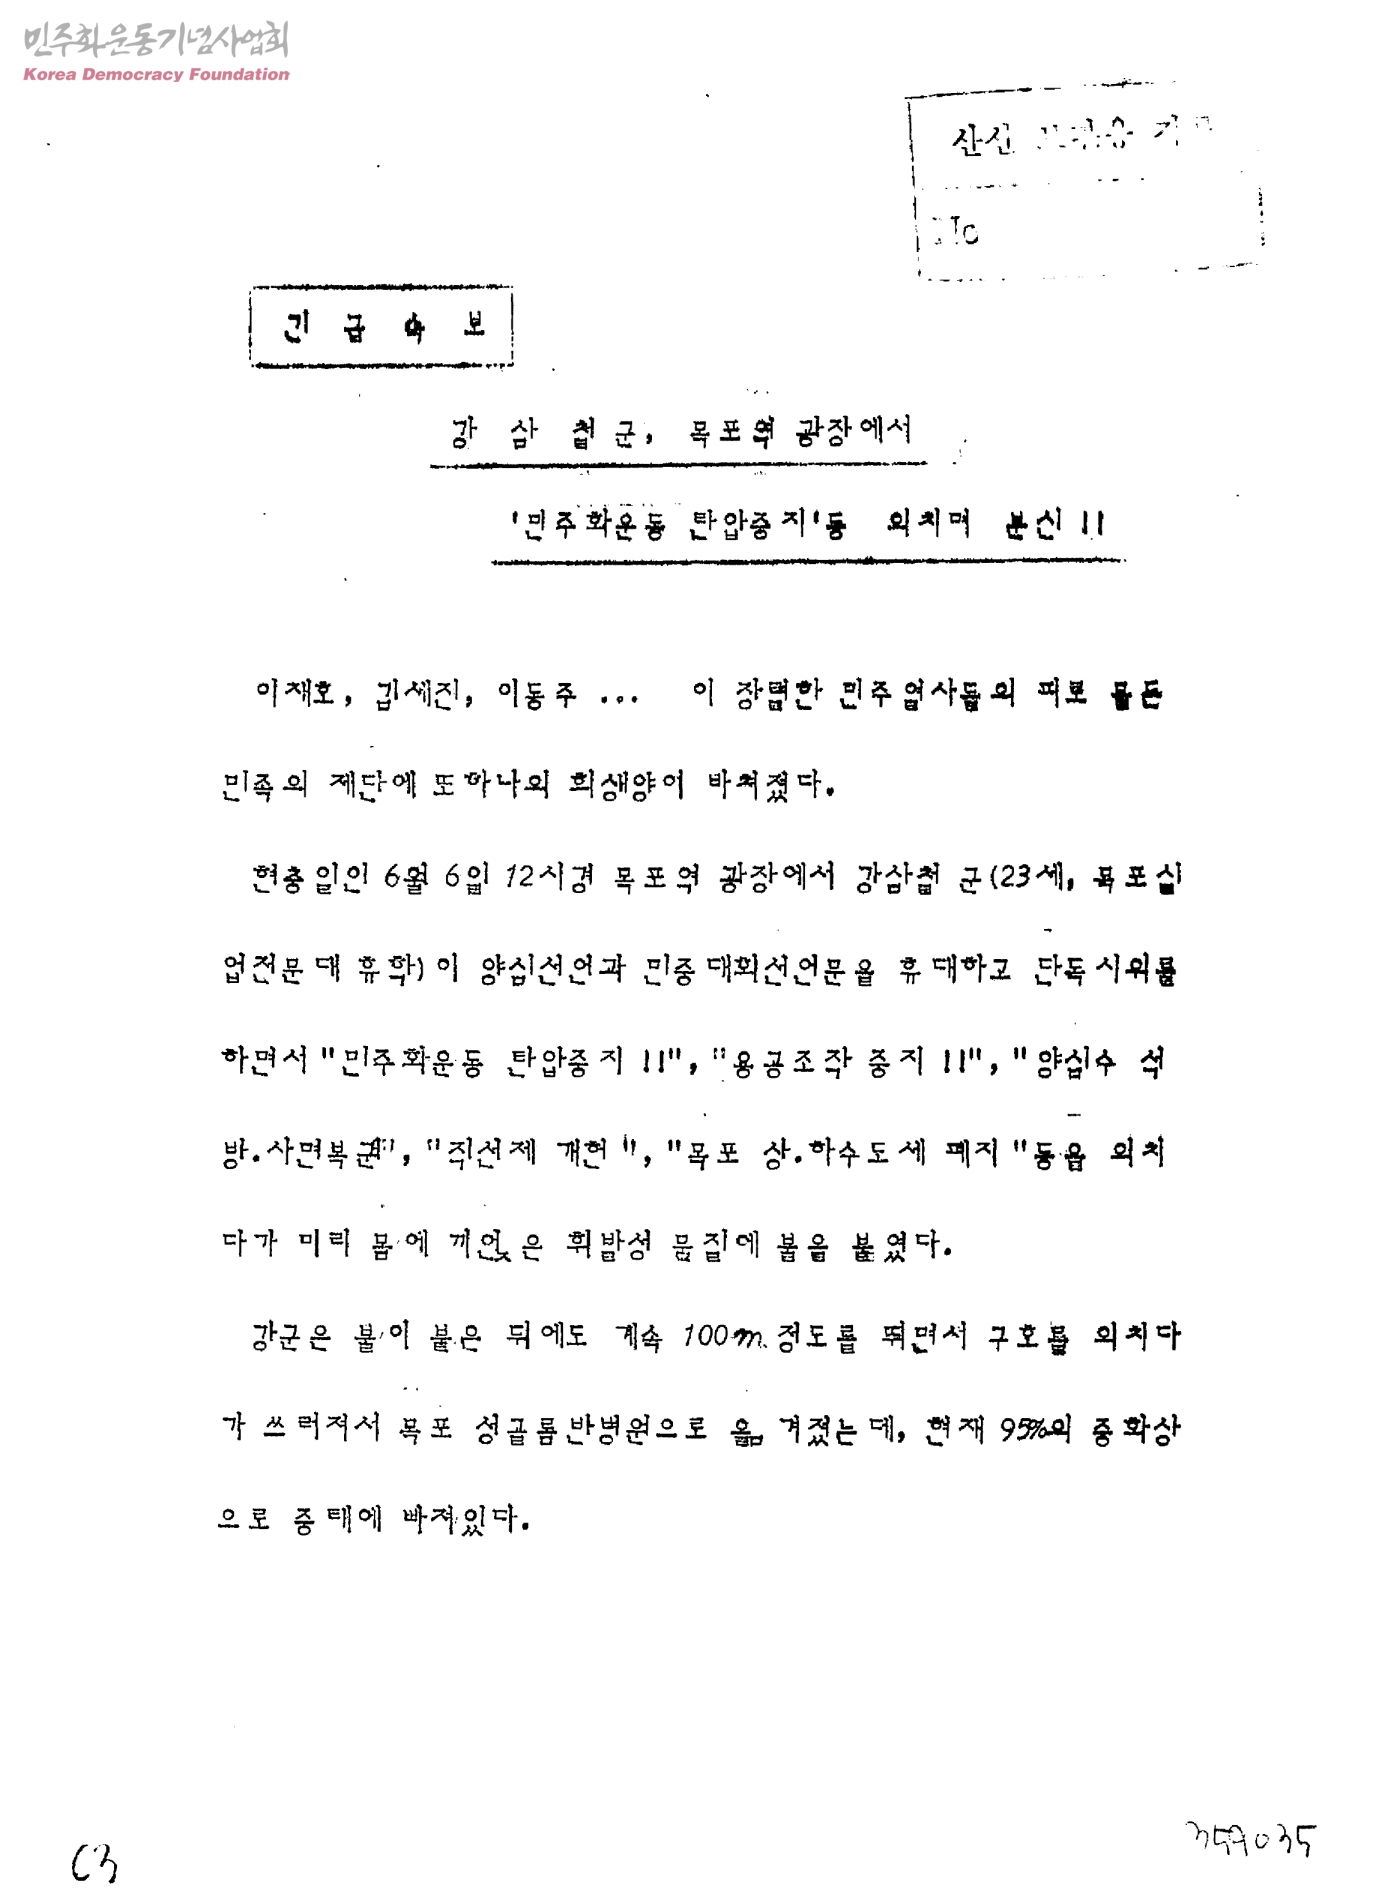 민주화운동기념사업회
Korea Democracy Foundation
산신
No
긴 급 속 보
강 삼 철 군, 목포역 광장에서
'민주화운동 탄압중지'등 외치며 분신 !!
이재호, 김세진, 이동주 ... 이 장렬한 민주열사들의 피로 물든
민족의 제단에 또하나의 희생양이 바쳐졌다.
현충일인 6월 6일 12시경 목포역 광장에서 강삼철 군(23세, 목포실
업전문대 휴학)이 양심선언과 민중대회선언문을 휴대하고 단독시위를
하면서 "민주화운동 탄압중지 !!", "용공조작 중지 !!", "양심수 석
방.사면복권", "직선제 개헌", "목포 상.하수도세 폐지"등을 외치
다가 미리 몸에 끼얹은 휘발성 물질에 불을 붙였다.
강군은 불이 붙은 뒤에도 계속 100m 정도를 뛰면서 구호를 외치다
가 쓰러져서 목포 성골롬반병원으로 옮겨졌는데, 현재 95%의 중화상
으로 중태에 빠져있다.
C3
359035